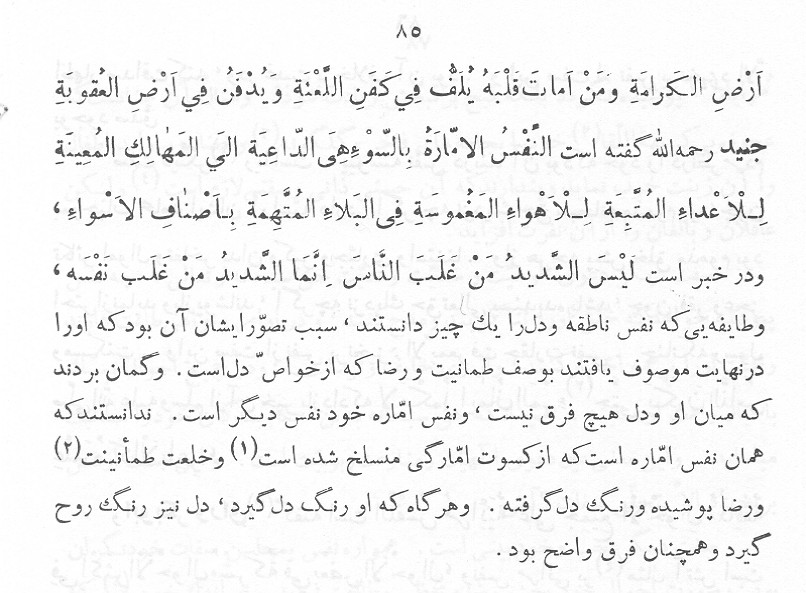 ۸۵
اَرْضِ الـکَرامَةِ وَمَنْ اَماتَ قَلْبَهُ یُلَفُّ فِي کَفَنِ اللَّعْنَةِ وَیُدْفَنُ فِي اَرْضِ العُقوبَةِ
جنید رحمه‌الله گفته است النَّفْسُ الاَمّارَةُ بِالسّوْءِ هِیَ الدّاعِیَة الَي المَهٰالِكِ المُعینَةِ
لِـلْاَعْداءِ المُتَّبِعَة لِـلْاَهْواءِ المَغْموسَةِ فِی البَلاءِ المُتَّهِمَةِ بِـاَصْنٰافِ الاَسْواءِ ،
ودر خبر است لَیْسَ الشَّدیدُ مَنْ غَلَبَ النَّاسَ اِنَّمَا الشَّدیدُ مَنْ غَلَبَ نَفْسَه ،
وطایفه‌یی‌که نفس ناطقه ودل‌را یك چیز دانستند ، سبب تصوّرایشان آن بود که اورا
درنهایت موصوف یافتند بوصف طمانیت ورضا که ازخواصّ دل‌است . وگمان بردند
که میان او ودل هیچ فرق نیست ، ونفس امّاره خود نفس دیگر است . ندانستندکه
همان نفس امّاره است‌که ازکسوت امّارگی منسلخ شده است(۱) وخلعت طمأنینت(۲)
ورضا پوشیده ورنگ دل‌گرفته . وهرگاه‌که او رنگ دل‌گیرد ، دل نیز رنگ روح
گیرد وهمچنان فرق واضح بود .